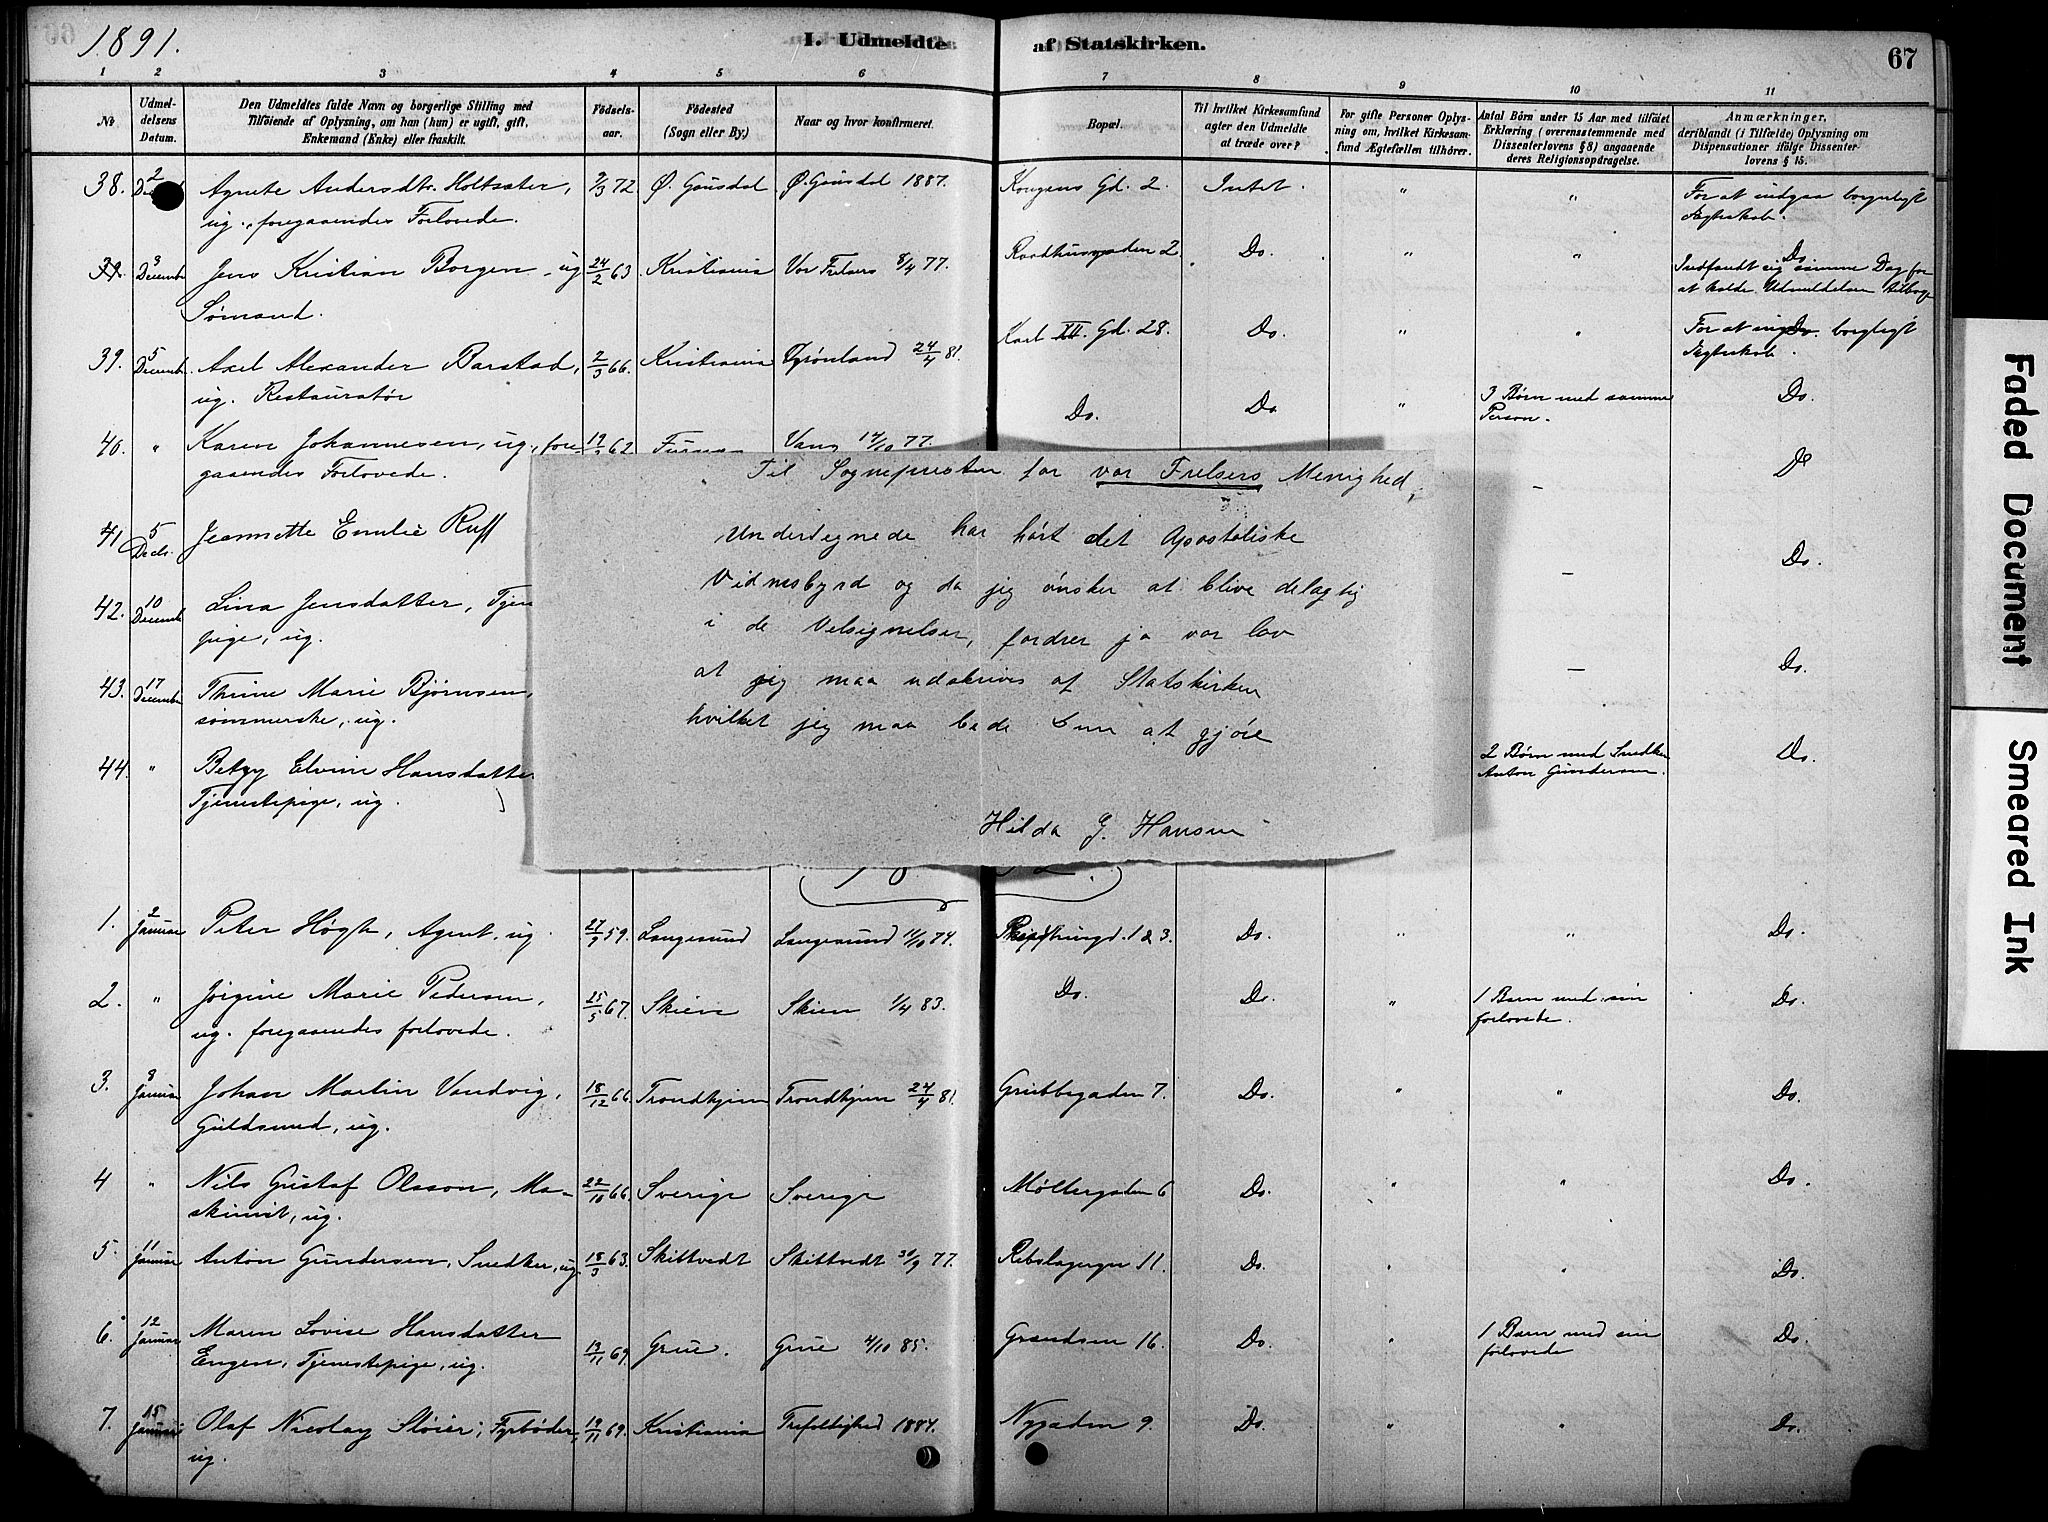 1891.
I. Udmeldte af Statskirken.
67
1 2 3 4 5 6 7 8 9 10 11
No
Udmel-
delsens
Datum.
Den Udmeldtes fulde Navn og borgerlige Stilling med
Tilföiende af Oplysning, om han (hun) er ugift, gift,
Enkemand (Enke) eller fraskilt.
Födsels-
aar.
Födested
(Sogn eller By.)
Naar og hvor konfirmeret.
Bopæl.
Til hvilket Kirkesamfund
agter den Udmeldte
at træde over?
For gifte Personer Oplys-
ning om, hvilket Kirkesam-
fund Ægtefællen tilhörer.
Antal Börn under 15 Aar med tilföiet
Erklæring (overensstemmende med
Dissenterlovens § 8) angaaende
deres Religionsopdragelse.
Anmærkninger,
deriblandt (i Tilfælde) Oplysning om
Dispensationer ifölge Dissenter-
lovens § 15.
38. 2 Agnete Andersdtr. Holtsæter, 2/3 72 Ø. Gausdal Ø. Gausdal 1887. Kongens Gd. 2. Intet. " " For at indgaa borgerligt
ug., foregaaendes Forlovede. Ægteskab.
39. 3 Decembr Jens Kristian Borgen, ug 24/2 63 Kristiania Vor Frelsers 8/4 77. Raadhusgaden 2 Do. " " Do
Sømand. Indfandt sig samme Dag for
at kalde Udmeldelsen tilbage
39. 5 Decembr. Axel Alexander Barstad, 2/3 66. Kristiania Grønland 24/4 81. Karl XII. Gd. 28. Do. " " For at indgaa borgligt
ug. Restauratør Ægteskab.
40. " Karen Johannesen, ug., fore- 19 62 Furnes Vang 14/10 77. Do. Do " 3 Børn med samme Do.
gaaendes Forlovede. Person.
Do
41. 5 Decbr. Jeannette Emilie Ruff – Do.
42. 10 Decembr Lina Jensdatter, Tjen
pige, ug. – Do.
43. 17 Decembr Thrine Marie Bjørnsen,
sømmerske, ug. –
44. " Betzy Elvine Hansdatter 2 Børn med Snedker Do.
Tjenestepige, ug. Anton Gundersen.
Til Sognepresten for vor Frelsers Menighed,
Undertegnede har hørt det Apostoliske
Vidnesbyrd og da jeg ønsker at blive delagtig
i de Velsignelser, fordrer jo vor lov
at jeg maa udskrives af Statskirken
hvilket jeg maa bede Dem at gjøre
Hilda G. Hansen
1. 2 Januar Peter Høgh, Agent, ug. 27/9 59. Langesund Langesund 11/10 74. 1 & 3. Do. " " Do.
2. " Jørgine Marie Pedersen, 25/5 67. Skien Skien 1/4 83. Do. Do. " 1 Barn med sin Do.
ug. foregaaendes forlovede. forlovede.
3. 8 Januar Johan Martin Vandvig, 18/12 66. Trondhjem Trondhjem 24/4 81. Grubbegaden 7. Do. " " Do.
Guldsmed, ug.
4 " Nils Gustaf Olsson, Ma- 22/10 66. Sverige Sverige Møllergaden 6 Do. " " Do.
skinist, ug.
5. 11 Januar Anton Gundersen, Snedker, ug. 18/3 63. Skiptvedt Skiptvedt 30/9 77. Rebslagergn 11. Do. " " Do.
6. 12 Januar Maren Lovise Hansdatter 13/11 69. Grue. Grue 4/10 85. Grændsen 16. Do. " 1 Barn med sin Do.
Engen, Tjenestepige, ug. forlovede
7. 15 Januar Olaf Nicolay Støier, Fyrbøder, 19/11 69. Kristiania Trefoldighed 1884. Nygaden 9. Do. " " Do.
ug.
Faded Document
Smeared Ink